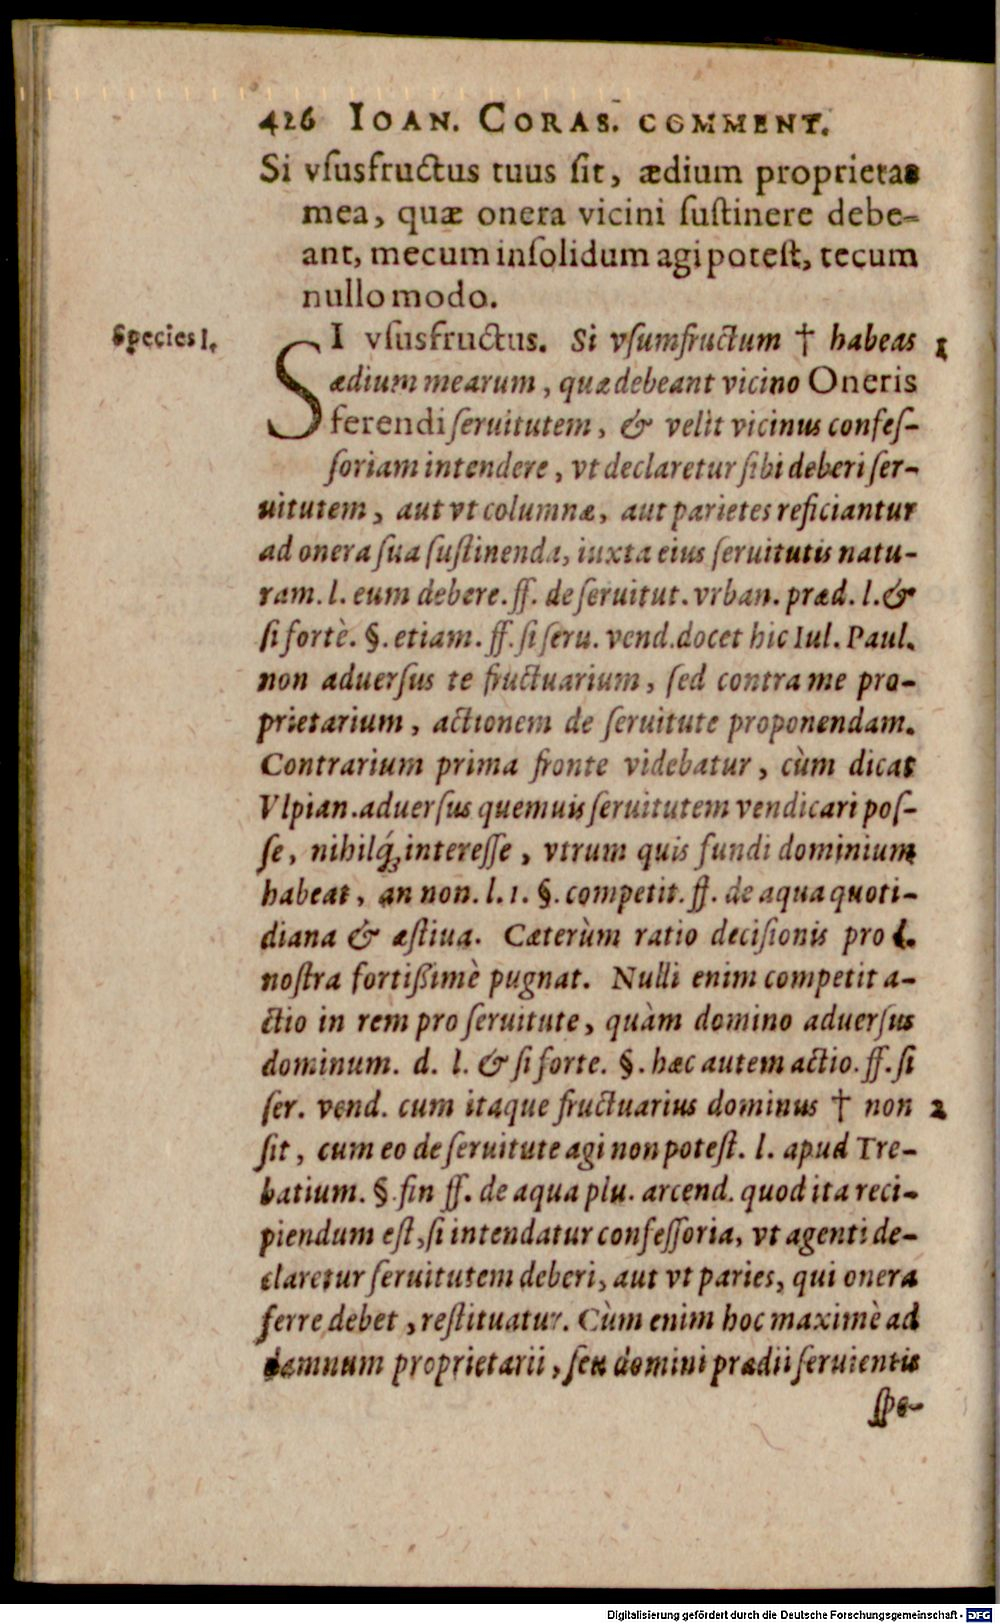 426 IOAN. CORAS. COMMENT.
Si vſusfructus tuus ſit, ædium proprietas
mea, quæ onera vicini ſuſtinere debe-
ant, mecum inſolidum agi poteſt, tecum
nullo modo.
Species I.
SI vſusfructus. Si vſumfructum † habeas 1
ædium mearum, quæ debeant vicino Oneris
ferendi ſeruitutem, & velit vicinus confeſ-
ſoriam intendere, vt declaretur ſibi deberi ſer-
uitutem, aut vt columnæ, aut parietes reficiantur
ad onera ſua ſuſtinenda, iuxta eius ſeruitutis natu-
ram. l. eum debere. ff. de ſeruitut. vrban. præd. l. &
ſi fortè. §. etiam. ff. ſi ſeru. vend. docet hic Iul. Paul.
non aduerſus te fructuarium, ſed contra me pro-
prietarium, actionem de ſeruitute proponendam.
Contrarium prima fronte videbatur, cùm dicat
Vlpian. aduerſus quemuis ſeruitutem vendicari poſ-
ſe, nihilq́; intereſſe, vtrum quis fundi dominium
habeat, an non. l. 1. §. competit. ff. de aqua quoti-
diana & æſtiua. Cæterùm ratio deciſionis pro l.
noſtra fortißimè pugnat. Nulli enim competit a-
ctio in rem pro ſeruitute, quàm domino aduerſus
dominum. d. l. & ſi forte. §. hæc autem actio. ff. ſi
ſer. vend. cum itaque fructuarius dominus † non 2
ſit, cum eo de ſeruitute agi non poteſt. l. apud Tre-
batium. §. fin ff. de aqua plu. arcend. quod ita reci-
piendum eſt, ſi intendatur confeſſoria, vt agenti de-
claretur ſeruitutem deberi, aut vt paries, qui onera
ferre debet, reſtituatur. Cùm enim hoc maximè ad
damnum proprietarii, ſeu domini prædii ſeruientis
ſpe-
Digitalisierung gefördert durch die Deutsche Forschungsgemeinschaft - DFG